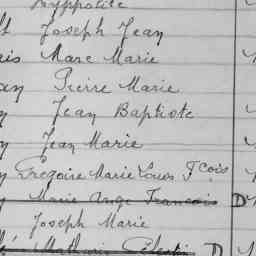 Hyppolite
Joseph Jean
Marc Marie
Pierre Marie
Jean Baptiste
Jean Marie
Grégoire Marie Louis Fçois
Marie Ange Francois D
Joseph Marie
Mathurin Célestin D